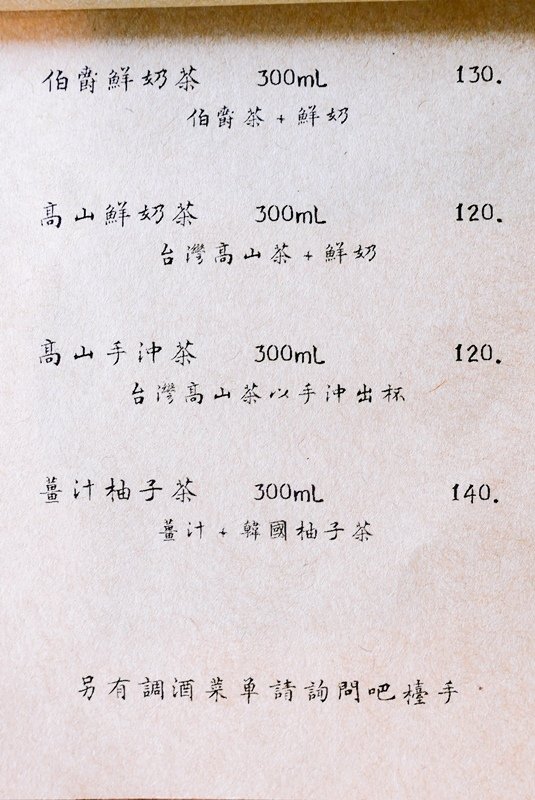 伯爵鮮奶茶 300mL 130.
伯爵茶 + 鮮奶
高山鮮奶茶 300mL 120.
台灣高山茶 + 鮮奶
高山手沖茶 300mL 120.
台灣高山茶以手沖出杯
薑汁柚子茶 300mL 140.
薑汁 + 韓國柚子茶
另有調酒菜單請詢問吧檯手